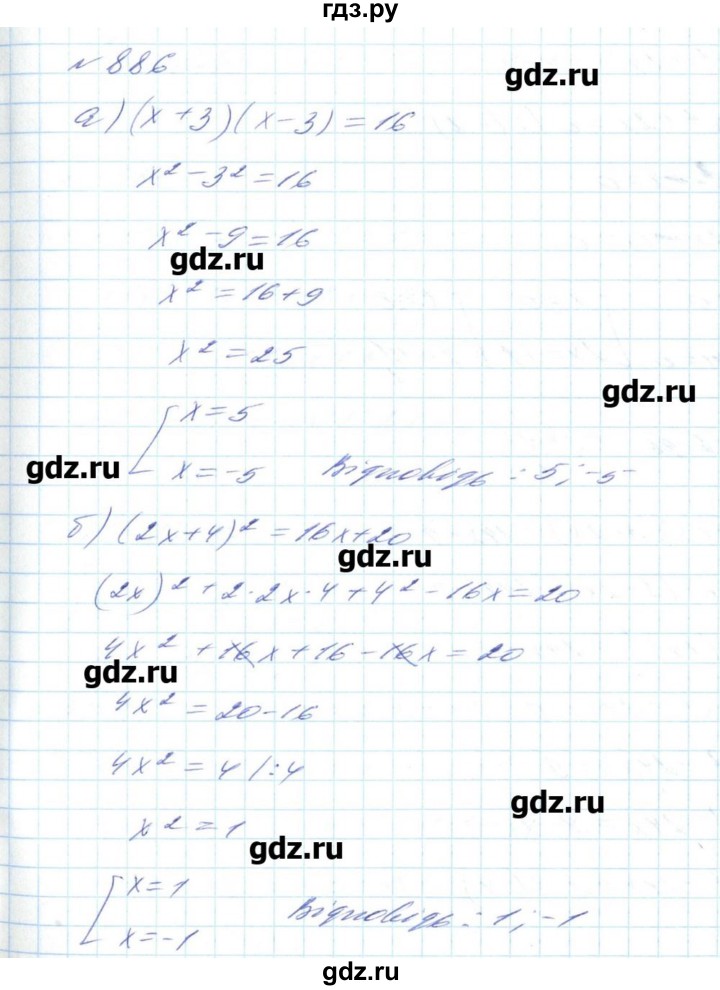 гдз.ру
№ 886
gdz.ru
а) (x+3)(x-3)=16
x² - 3² = 16
x² - 9 = 16
gdz.ru
x² = 16+9
x² = 25
gdz.ru
[ x = 5
gdz.ru
x = -5 Відповідь: 5; -5
б) (2x+4)² = 16x+20
gdz.ru
(2x)² + 2·2x·4 + 4² - 16x = 20
4x² + 16x + 16 - 16x = 20
gdz.ru
4x² = 20-16
4x² = 4 /:4
gdz.ru
x² = 1
gdz.ru
[ x = 1
x = -1 Відповідь: 1; -1
gdz.ru